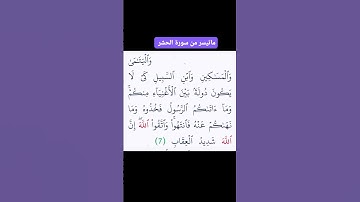 ماتيسر من سورة الحشر
وَٱلۡيَتَٰمَىٰ
وَٱلۡمَسَٰكِينِ وَٱبۡنِ ٱلسَّبِيلِ كَيۡ لَا
يَكُونَ دُولَةَۢ بَيۡنَ ٱلۡأَغۡنِيَآءِ مِنكُمۡۚ
وَمَآ ءَاتَىٰكُمُ ٱلرَّسُولُ فَخُذُوهُ وَمَا
نَهَىٰكُمۡ عَنۡهُ فَٱنتَهُواْۚ وَٱتَّقُواْ ٱللَّهَۖ إِنَّ
ٱللَّهَ شَدِيدُ ٱلۡعِقَابِ (7)